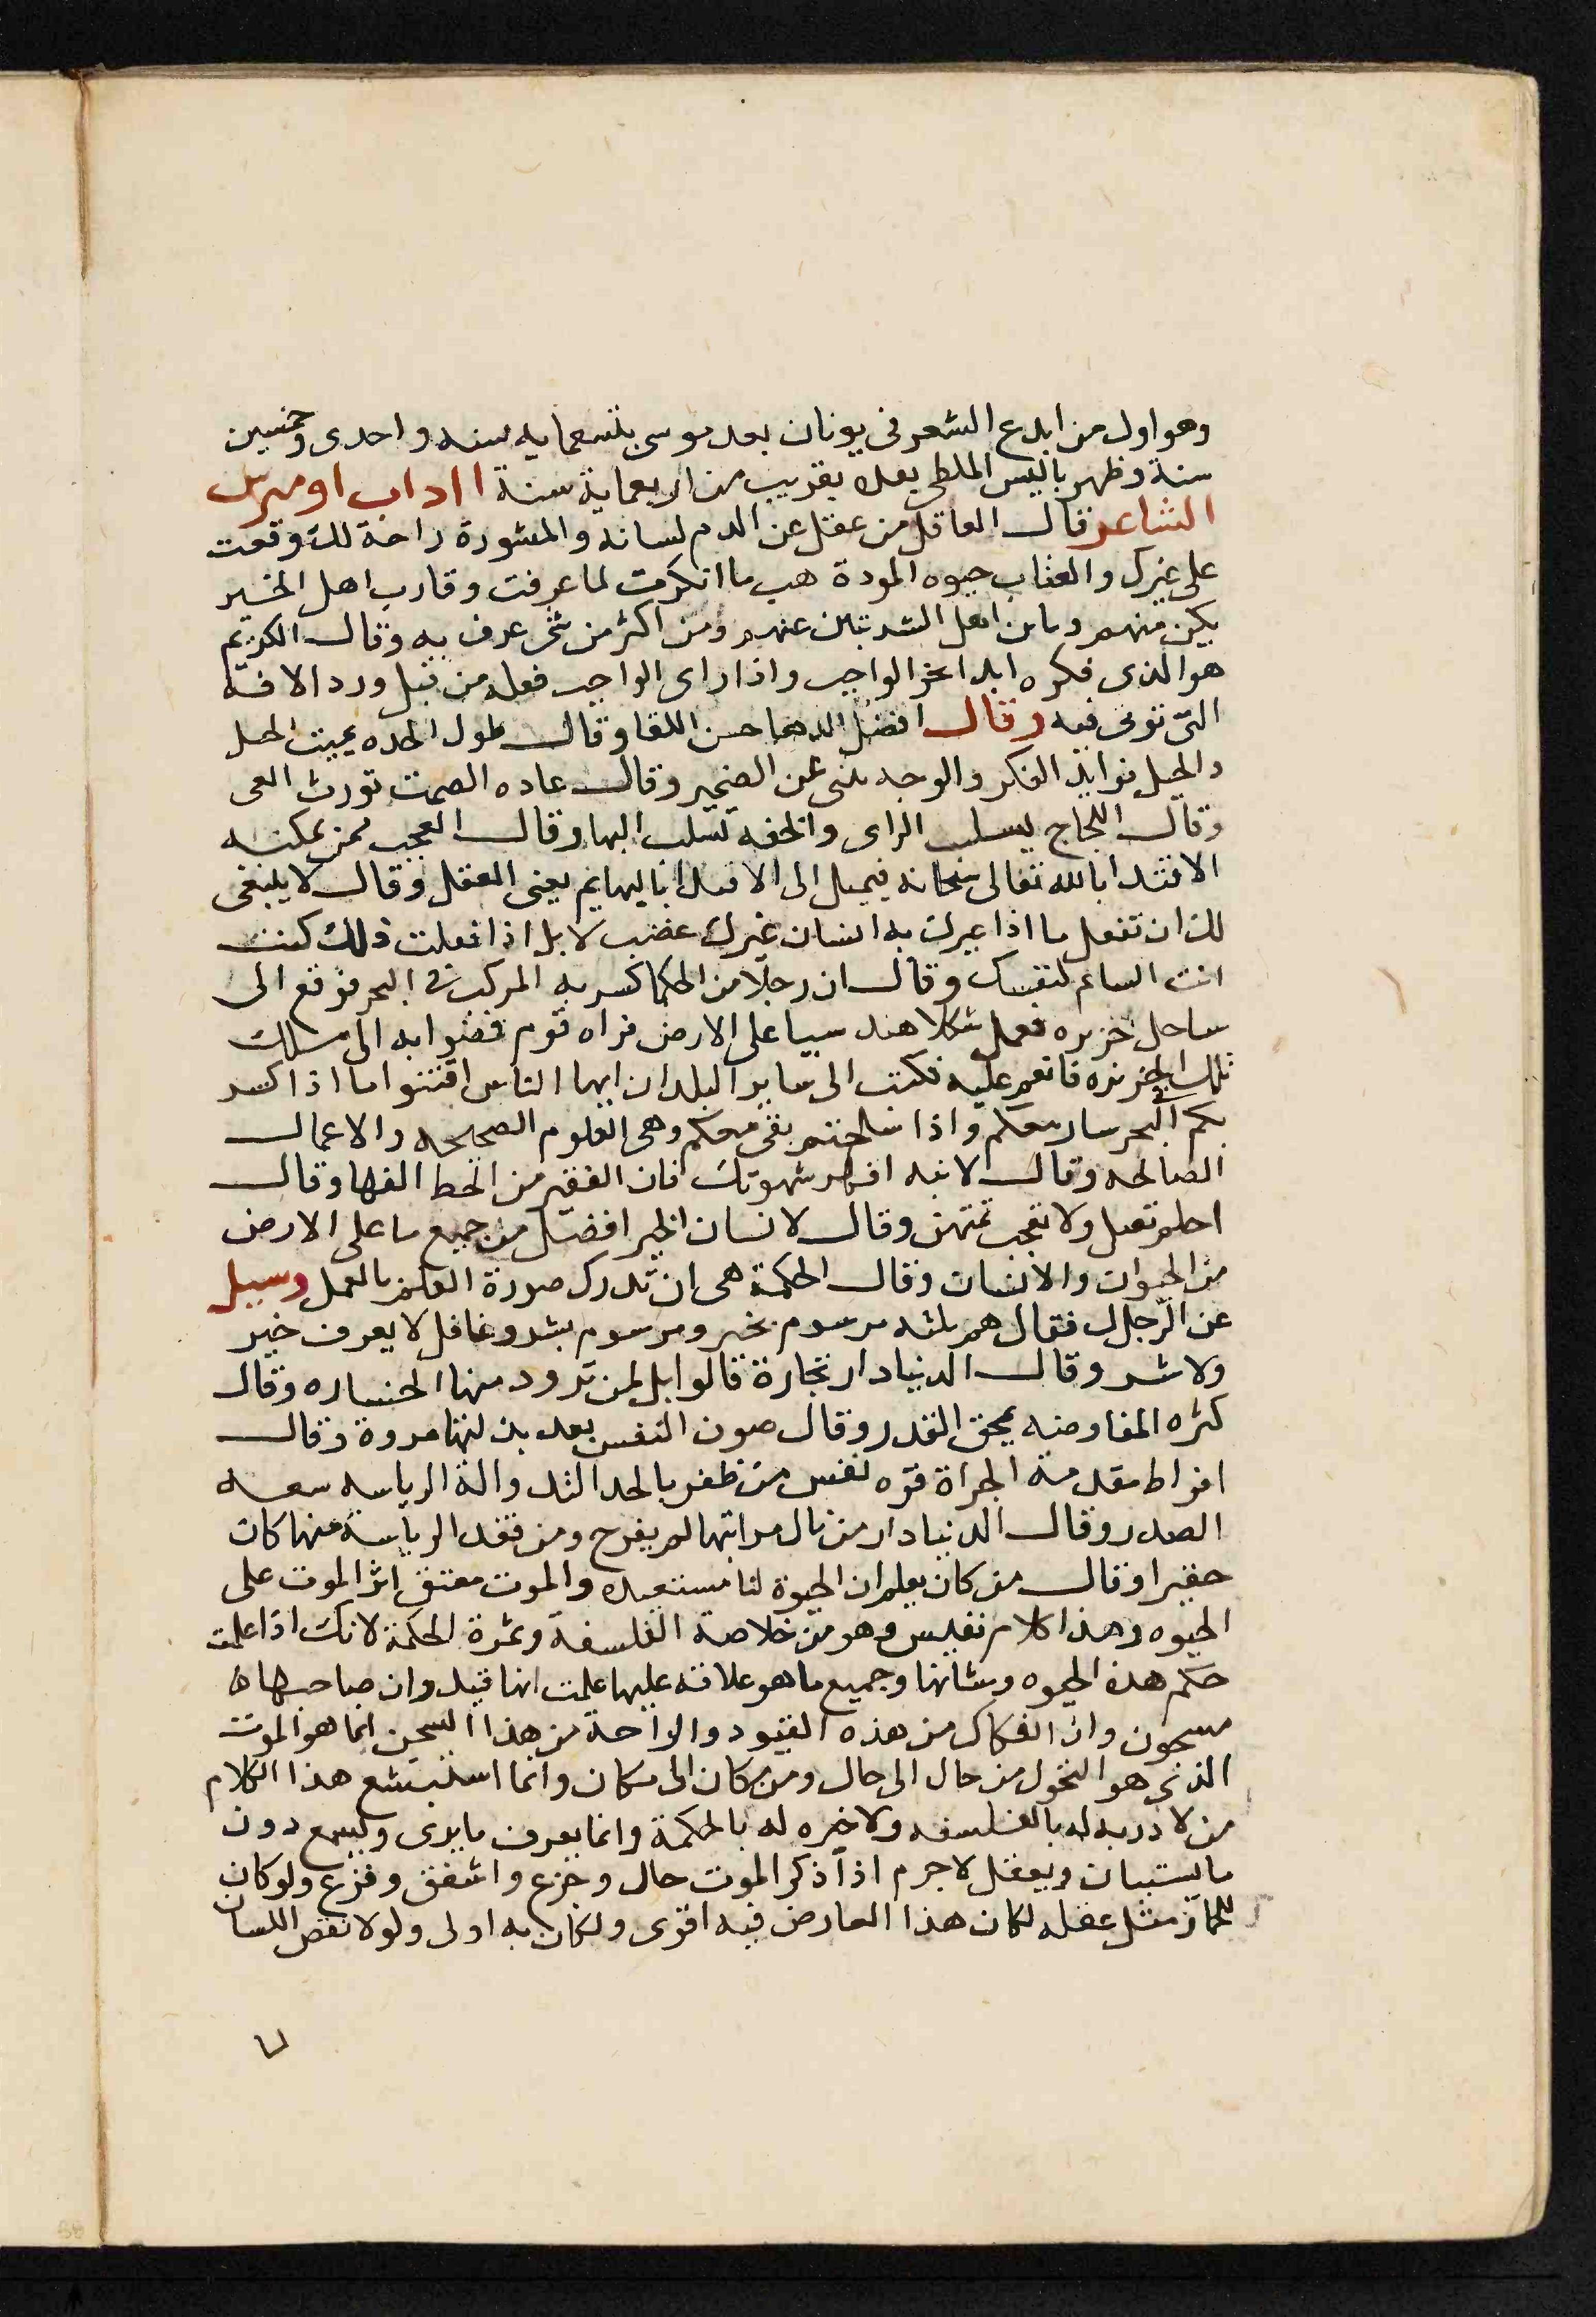 وهو اول من ابدع الشعر في يونان بعد موسى بتسعمايه سنه واحدى وخمسين
سنة وظهر باليس الملطى بعده بقريب من اربعماية سنة اداب اوميرس
الشاعر قال العاقل من عقل عن الذم لسانه والمشورة راحة لك وقعت
على غيرك والعتاب حيوه المودة هب ما انكرت لما عرفت وقارب اهل الخير
تكن منهم وباين اهل الشر تبن عنهم ومن اكثر من شى عرف به وقال الكريم
هو الذى فكره ابدا نحو الواجب واذا راى الواجب فعله من قبل ورد الافه
التى توى فيه وقال افضل الدها حسن اللقا وقال طول الحده يميت الحيل
والحيل فوايد الفكر والوجه ينبى عن الضمير وقال عاده الصمت تورث العى
وقال اللجاج يسلب الراى والخفه تسلب البها وقال العجب ممن يمكنه
الاقتدا بالله تعالى سبحانه فيميل الى الاقتدا بالبهايم يعنى العقل وقال لا ينبغى
لك ان تفعل ما اذا عيرك به انسان غيرك غضب لا بل اذا فعلت ذلك كنت
انت الساتم لنفسك وقال ان رجلا من الحكما كسر به المركب فى البحر فوقع الى
ساحل جزيره فعمل شكلا هندسيا على الارض فراه قوم فمضوا به الى ملك
تلك الجزيره فانعم عليه فكتب الى ساير البلدان ايها الناس اقتنوا ما اذا كسر
بكم فى البحر سار معكم واذا سلمتم بقى معكم وهى العلوم الصحيحه والاعمال
الصالحه وقال لابنه اقهر شهوتك فان الفقير من انحط الفها وقال
احلم تعل ولا تعجب تمتهن وقال لانسان الخير افضل من جميع ما على الارض
من الحيوان والانسان وقال الحكمة هى ان تدرك صورة العلم بالعمل وسيل
عن الرجال فقال هم ثلثه مرسوم بخير ومرسوم بشر وغافل لا يعرف خير
ولا شر وقال الدنيا دار تجارة قالوا بل لمن تزود منها الخساره وقال
كثره المفاوضه يمحق القدر وقال صون النفس بعد بذلتها مروة وقال
افراط مقدمة الجراة قوه نفس من ظفر بالحد التد والة الرياسه سعه
الصدر وقال الدنيا دار من نال مراتبها لم يفرح ومن فقد الرياسة منها كان
حقيرا وقال من كان يعلم ان الحيوة لنا مستعبده والموت معتق اثر الموت على
الحيوه وهذا كلام نفيس وهو من خلاصة الفلسفة وثمرة الحكمة لانك اذا علمت
حكم هذه الحيوه وشانها وجميع ما هو علاقه عليها علمت انها قيد وان صاحبها
مسجون وان الفكاك من هذه القيود والراحة من هذا السجن انما هو الموت
الذى هو التحول من حال الى حال ومن مكان الى مكان وانما استبشع هذا الكلام
من لا دربه له بالفلسفه ولا خبره له بالحكمة وانما يعرف ما يرى ويسمع دون
ما يستبان ويعقل لا جرم اذا ذكر الموت حال وجزع واشفق وفزع ولو كان
للحمار مثل عقله لكان هذا العارض فيه اقوى ولكان به اولى ولولا نقض اللسان